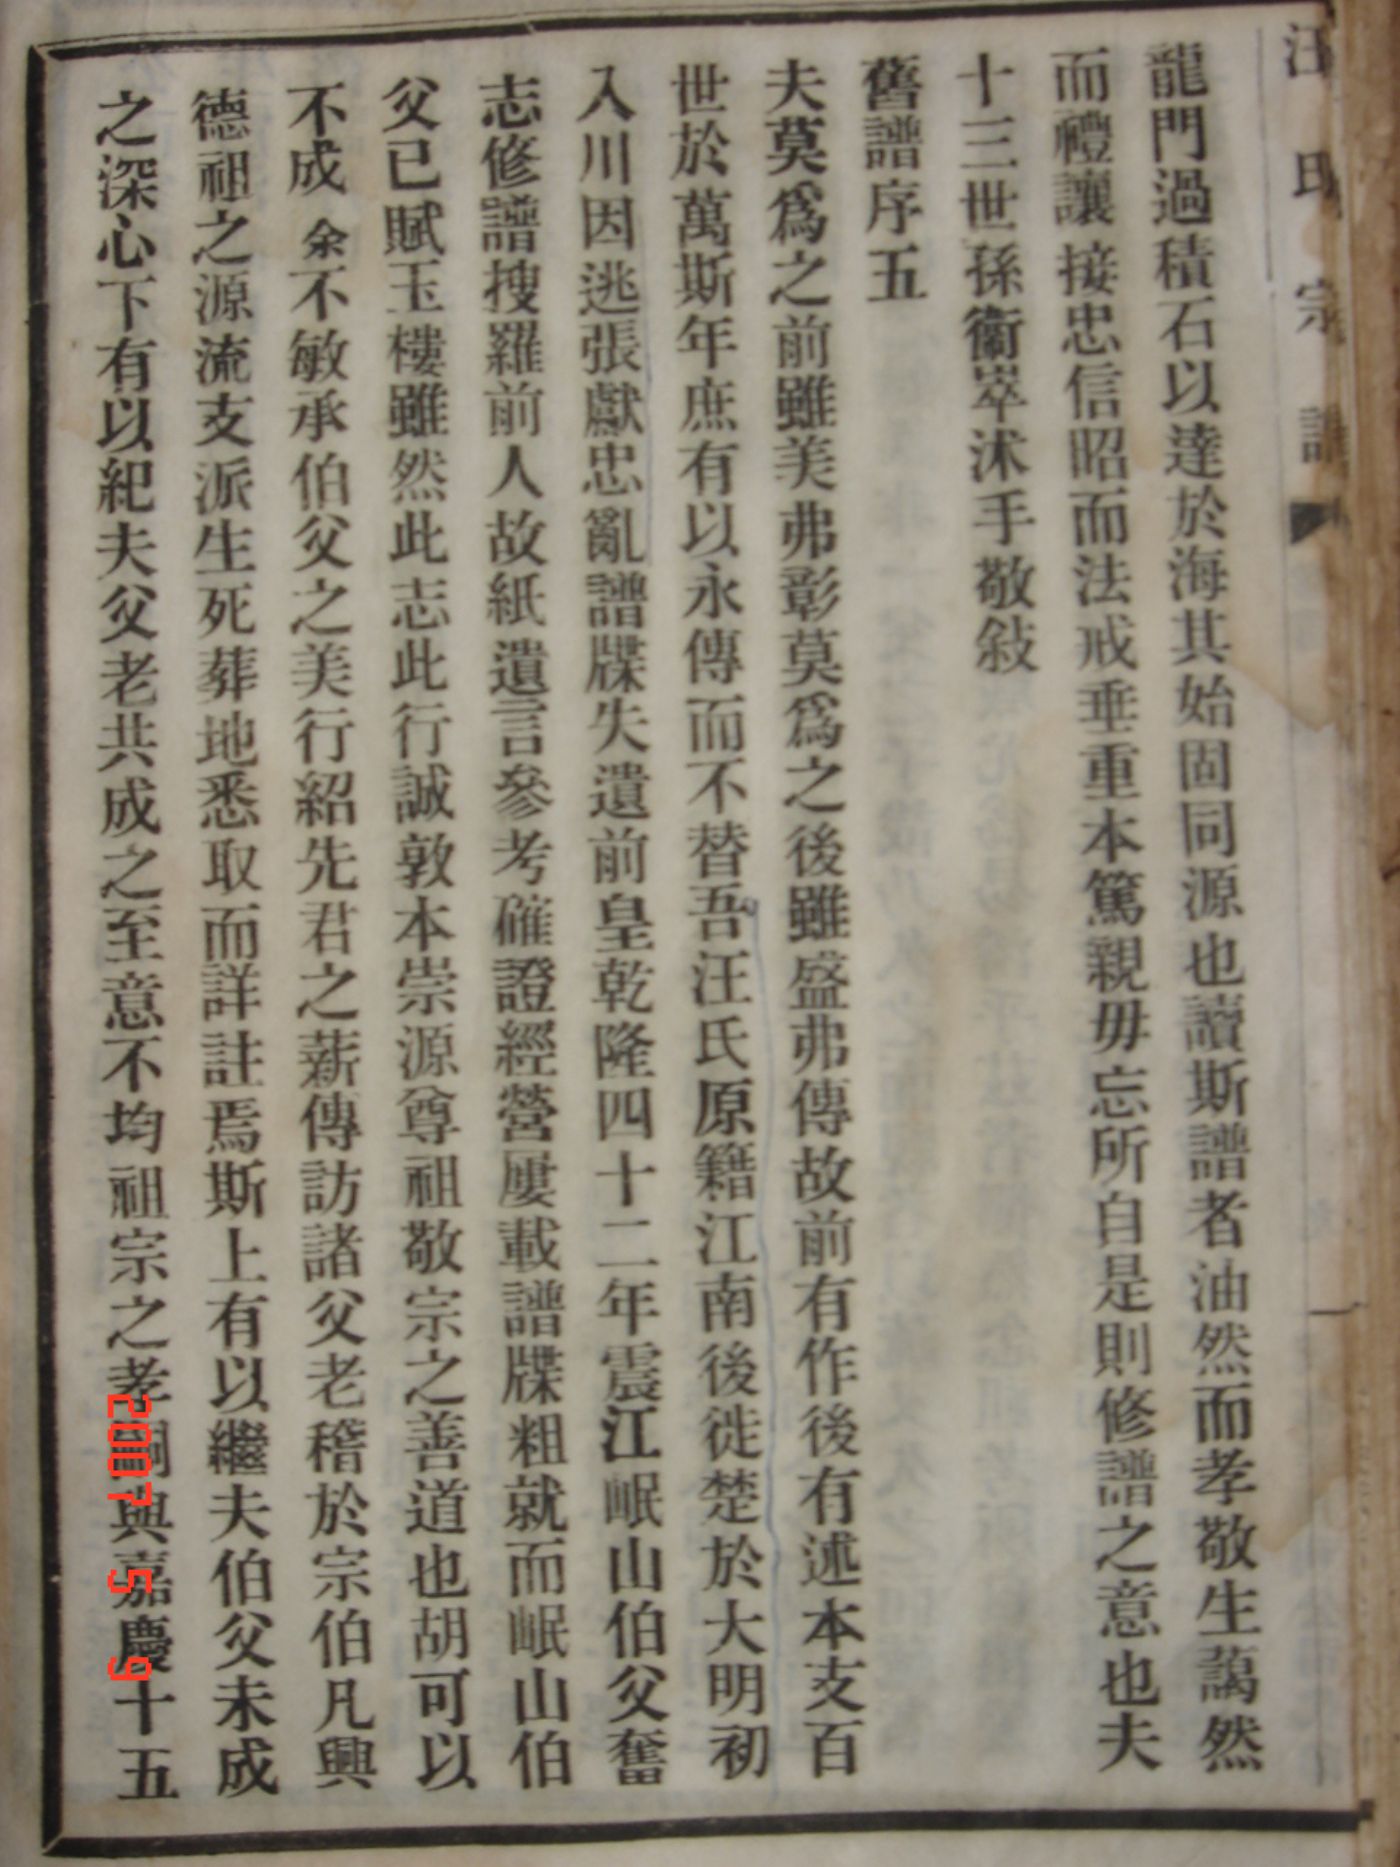 汪氏宗譜
一
龍門過積石以達於海其始固同源也讀斯譜者油然而孝敬生藹然
而禮讓接忠信昭而法戒垂重本篤親毋忘所自是則修譜之意也夫
十三世孫衞崒沭手敬敍
舊譜序五
夫莫爲之前雖美弗彰莫爲之後雖盛弗傳故前有作後有述本支百
世於萬斯年庶有以永傳而不替吾汪氏原籍江南後徙楚於大明初
入川因逃張獻忠亂譜牒失遺前皇乾隆四十二年震江岷山伯父奮
志修譜搜羅前人故紙遺言參考確證經營屢載譜牒粗就而岷山伯
父已賦玉樓雖然此志此行誠敦本崇源尊祖敬宗之善道也胡可以
不成余不敏承伯父之美行紹先君之薪傳訪諸父老稽於宗伯凡興
德祖之源流支派生死葬地悉取而詳註焉斯上有以繼夫伯父未成
之深心下有以紀夫父老共成之至意不均祖宗之孝嗣與嘉慶十五
2007 5 9